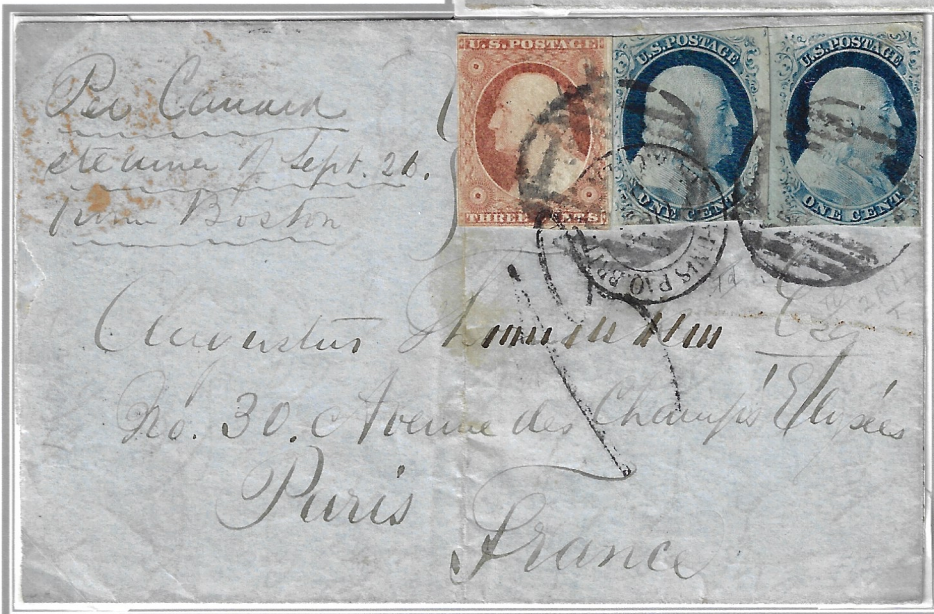 Per Cunard
steamer of Sept. 26.
from Boston
U.S. POSTAGE
THREE CENTS
U.S. POSTAGE
ONE CENT
U.S. POSTAGE
ONE CENT
Esq
No. 30. Avenue des Champs Elysées
Paris
France